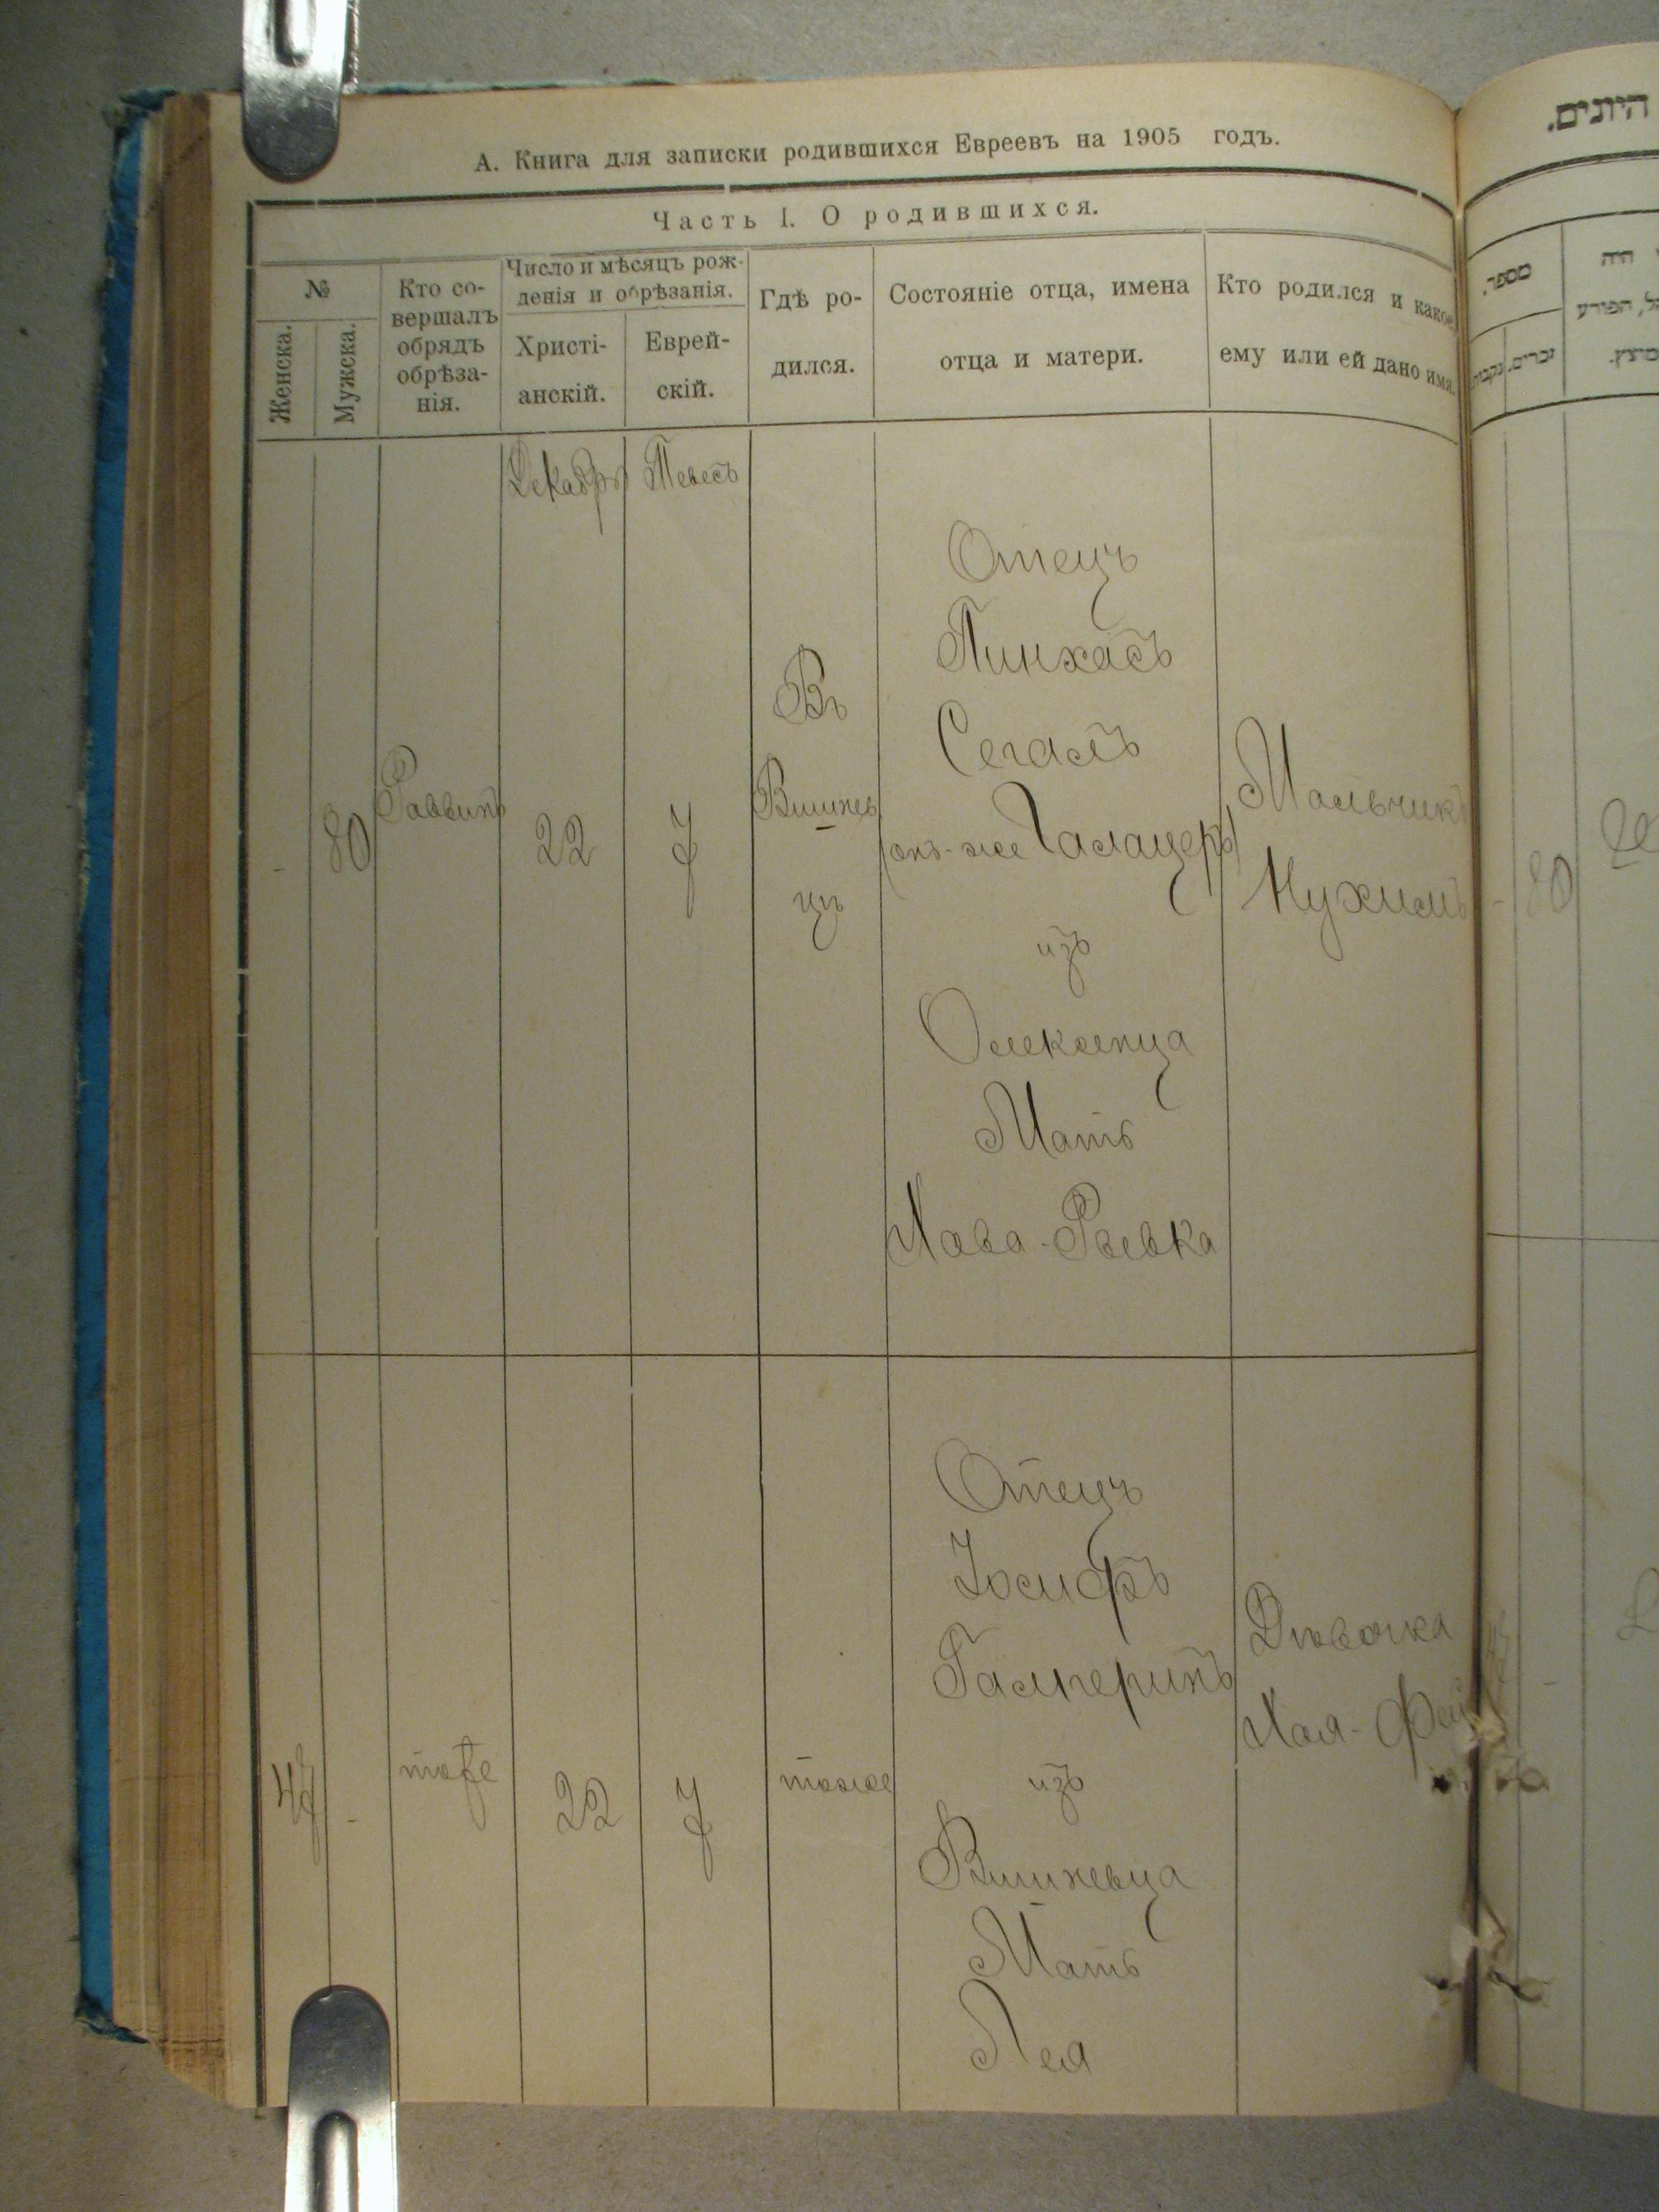 А. Книга для записки родившихся Евреевъ на 1905 годъ.
Часть I. О родившихся.
№
Женска.
Мужска.
Кто со-
вершалъ
обрядъ
обрѣза-
нія.
Число и мѣсяцъ рож-
денія и обрѣзанія.
Христі-
анскій.
Еврей-
скій.
Гдѣ ро-
дился.
Состояніе отца, имена
отца и матери.
Кто родился и какое
ему или ей дано имя.
Декабрь
Тевесъ
-
80
Раввинъ
22
7
Въ
Вишнев
цѣ
Отецъ
Пинхасъ
Сегалъ
онъ-же Галацеръ
изъ
Олексинца
Мать
Хава-Рывка
Мальчикъ
Нухимъ
47
-
тоже
22
7
тоже
Отецъ
Іосифъ
Галперинъ
изъ
Вишневца
Мать
Лея
Дѣвочка
Хая-Фей
היונים.
מספר.
זכרים.
היה
הפורע
- 80